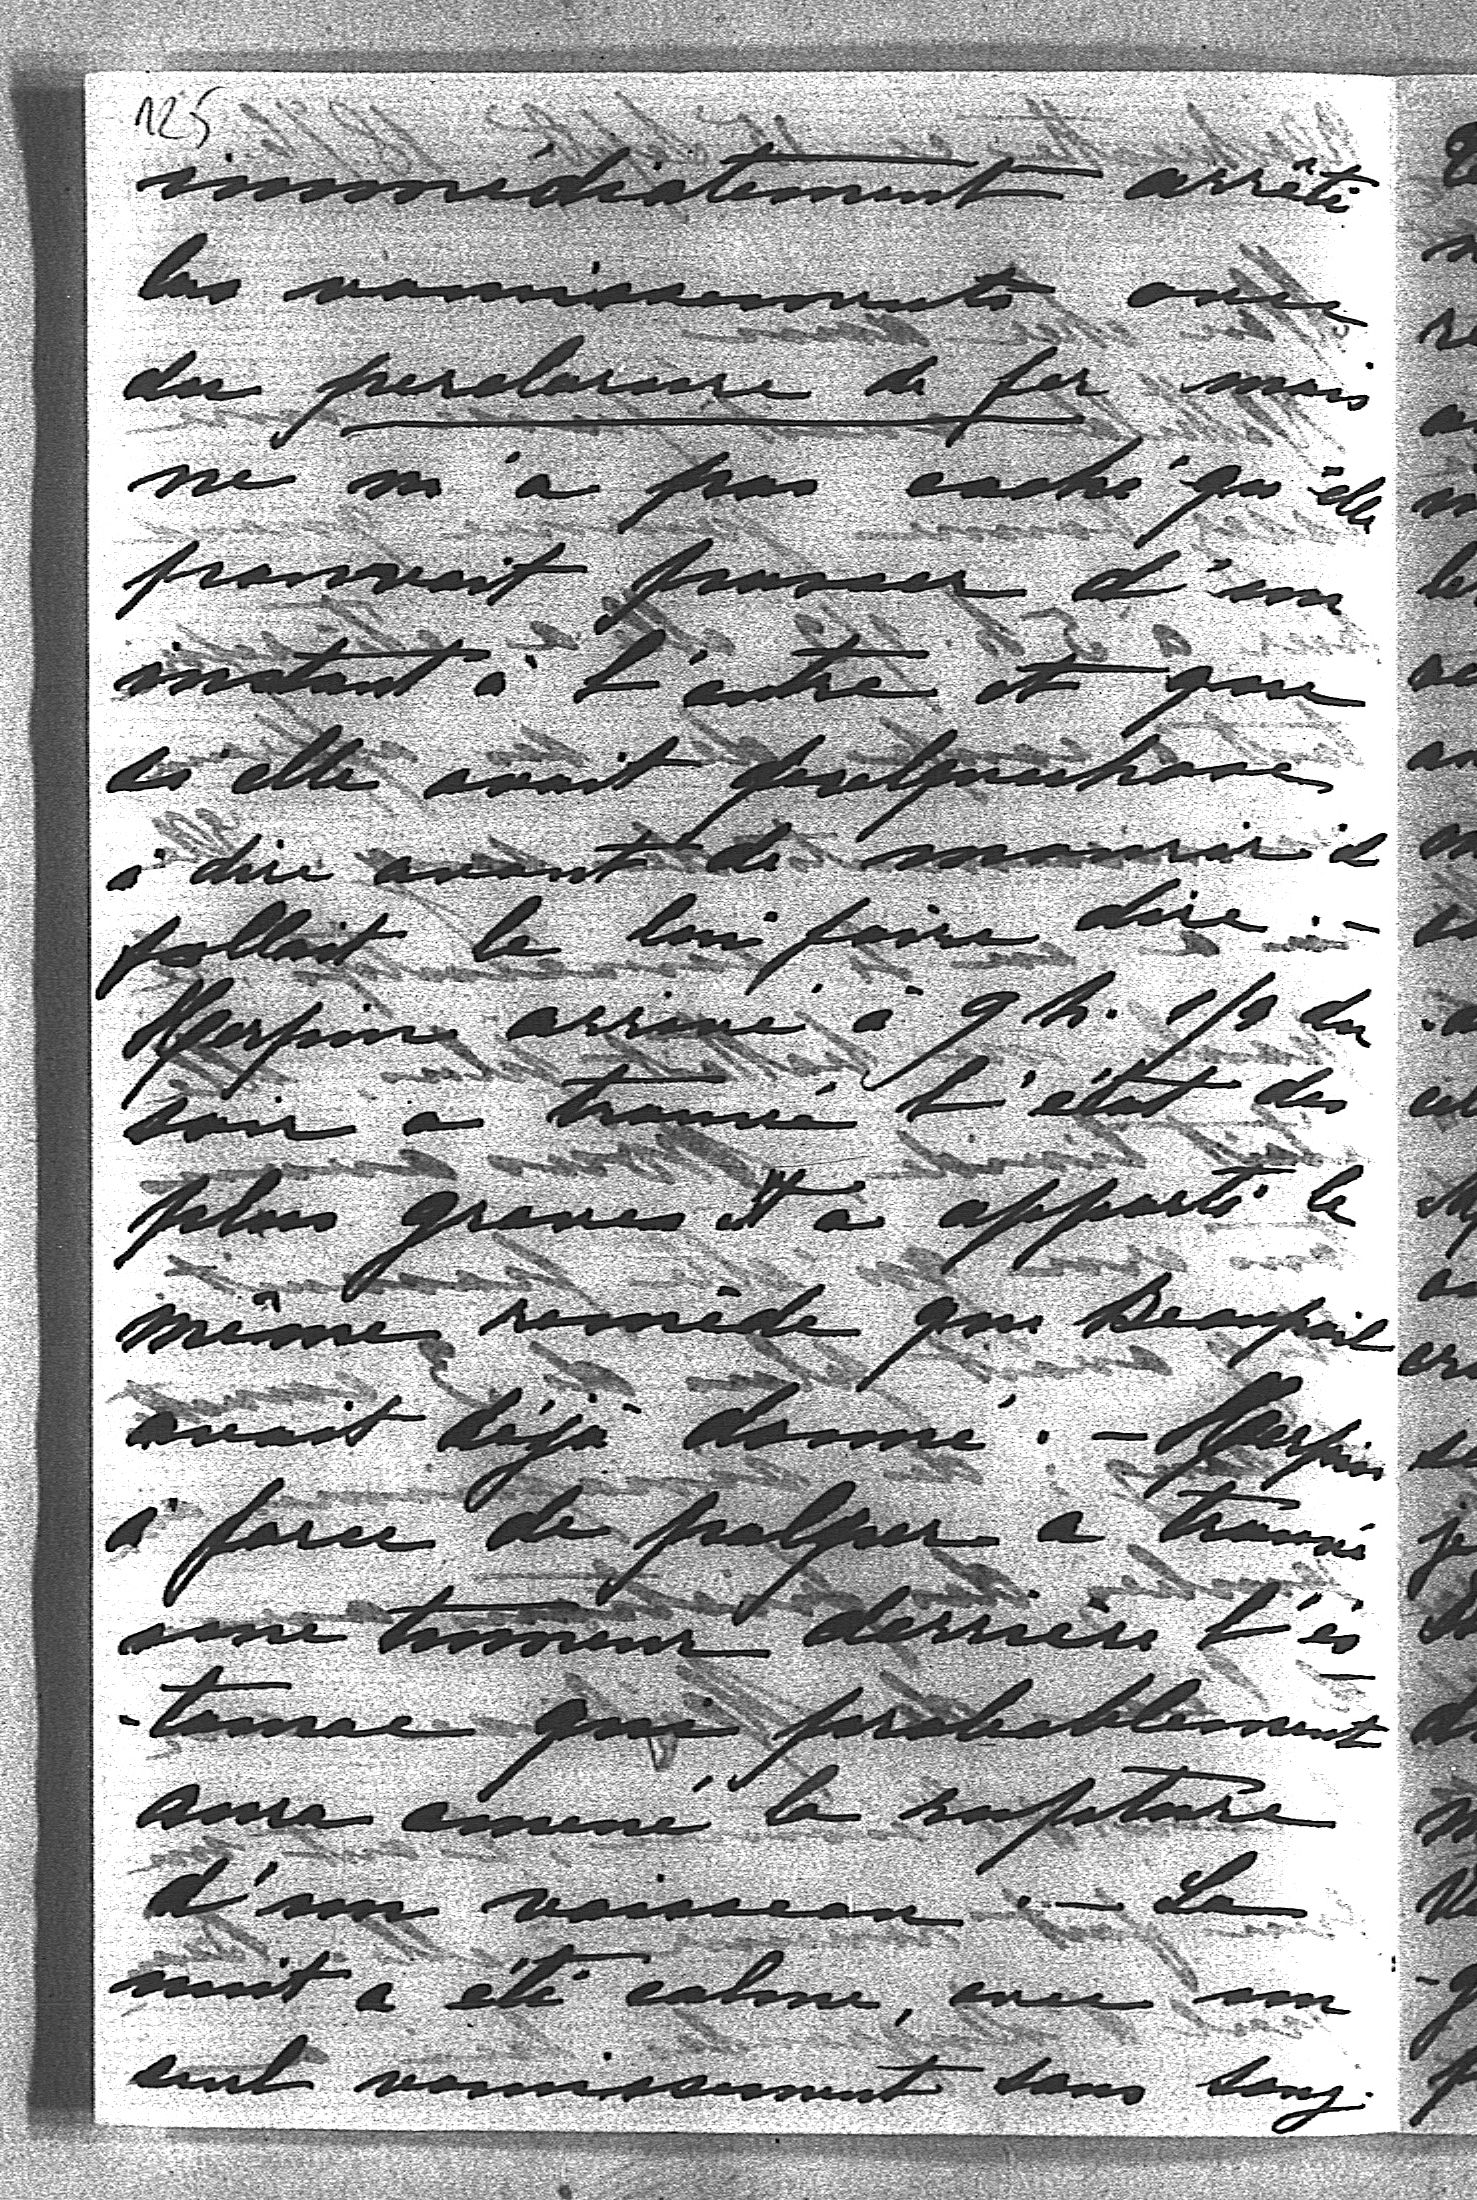 125
immédiatement arrêté
les vomissements avec
du perclorure de fer mais
ne m'a pas caché qu'elle
pouvait passer d'un
instant à l'autre et que
si elle avait quelquechose
à dire avant de mourir il
fallait le lui faire dire. –
Herpin arrivé à 9 h. 1/2 du
soir a trouvé l'état des
plus graves et a apporté le
même remède que Beaupoil
avait déjà donné. – Herpin
à force de palper a trouvé
une tumeur derrière l'es
-tomac qui probablement
aura amené la rupture
d'un vaisseau. – La
nuit a été calme, avec un
seul vomissement sans sang.